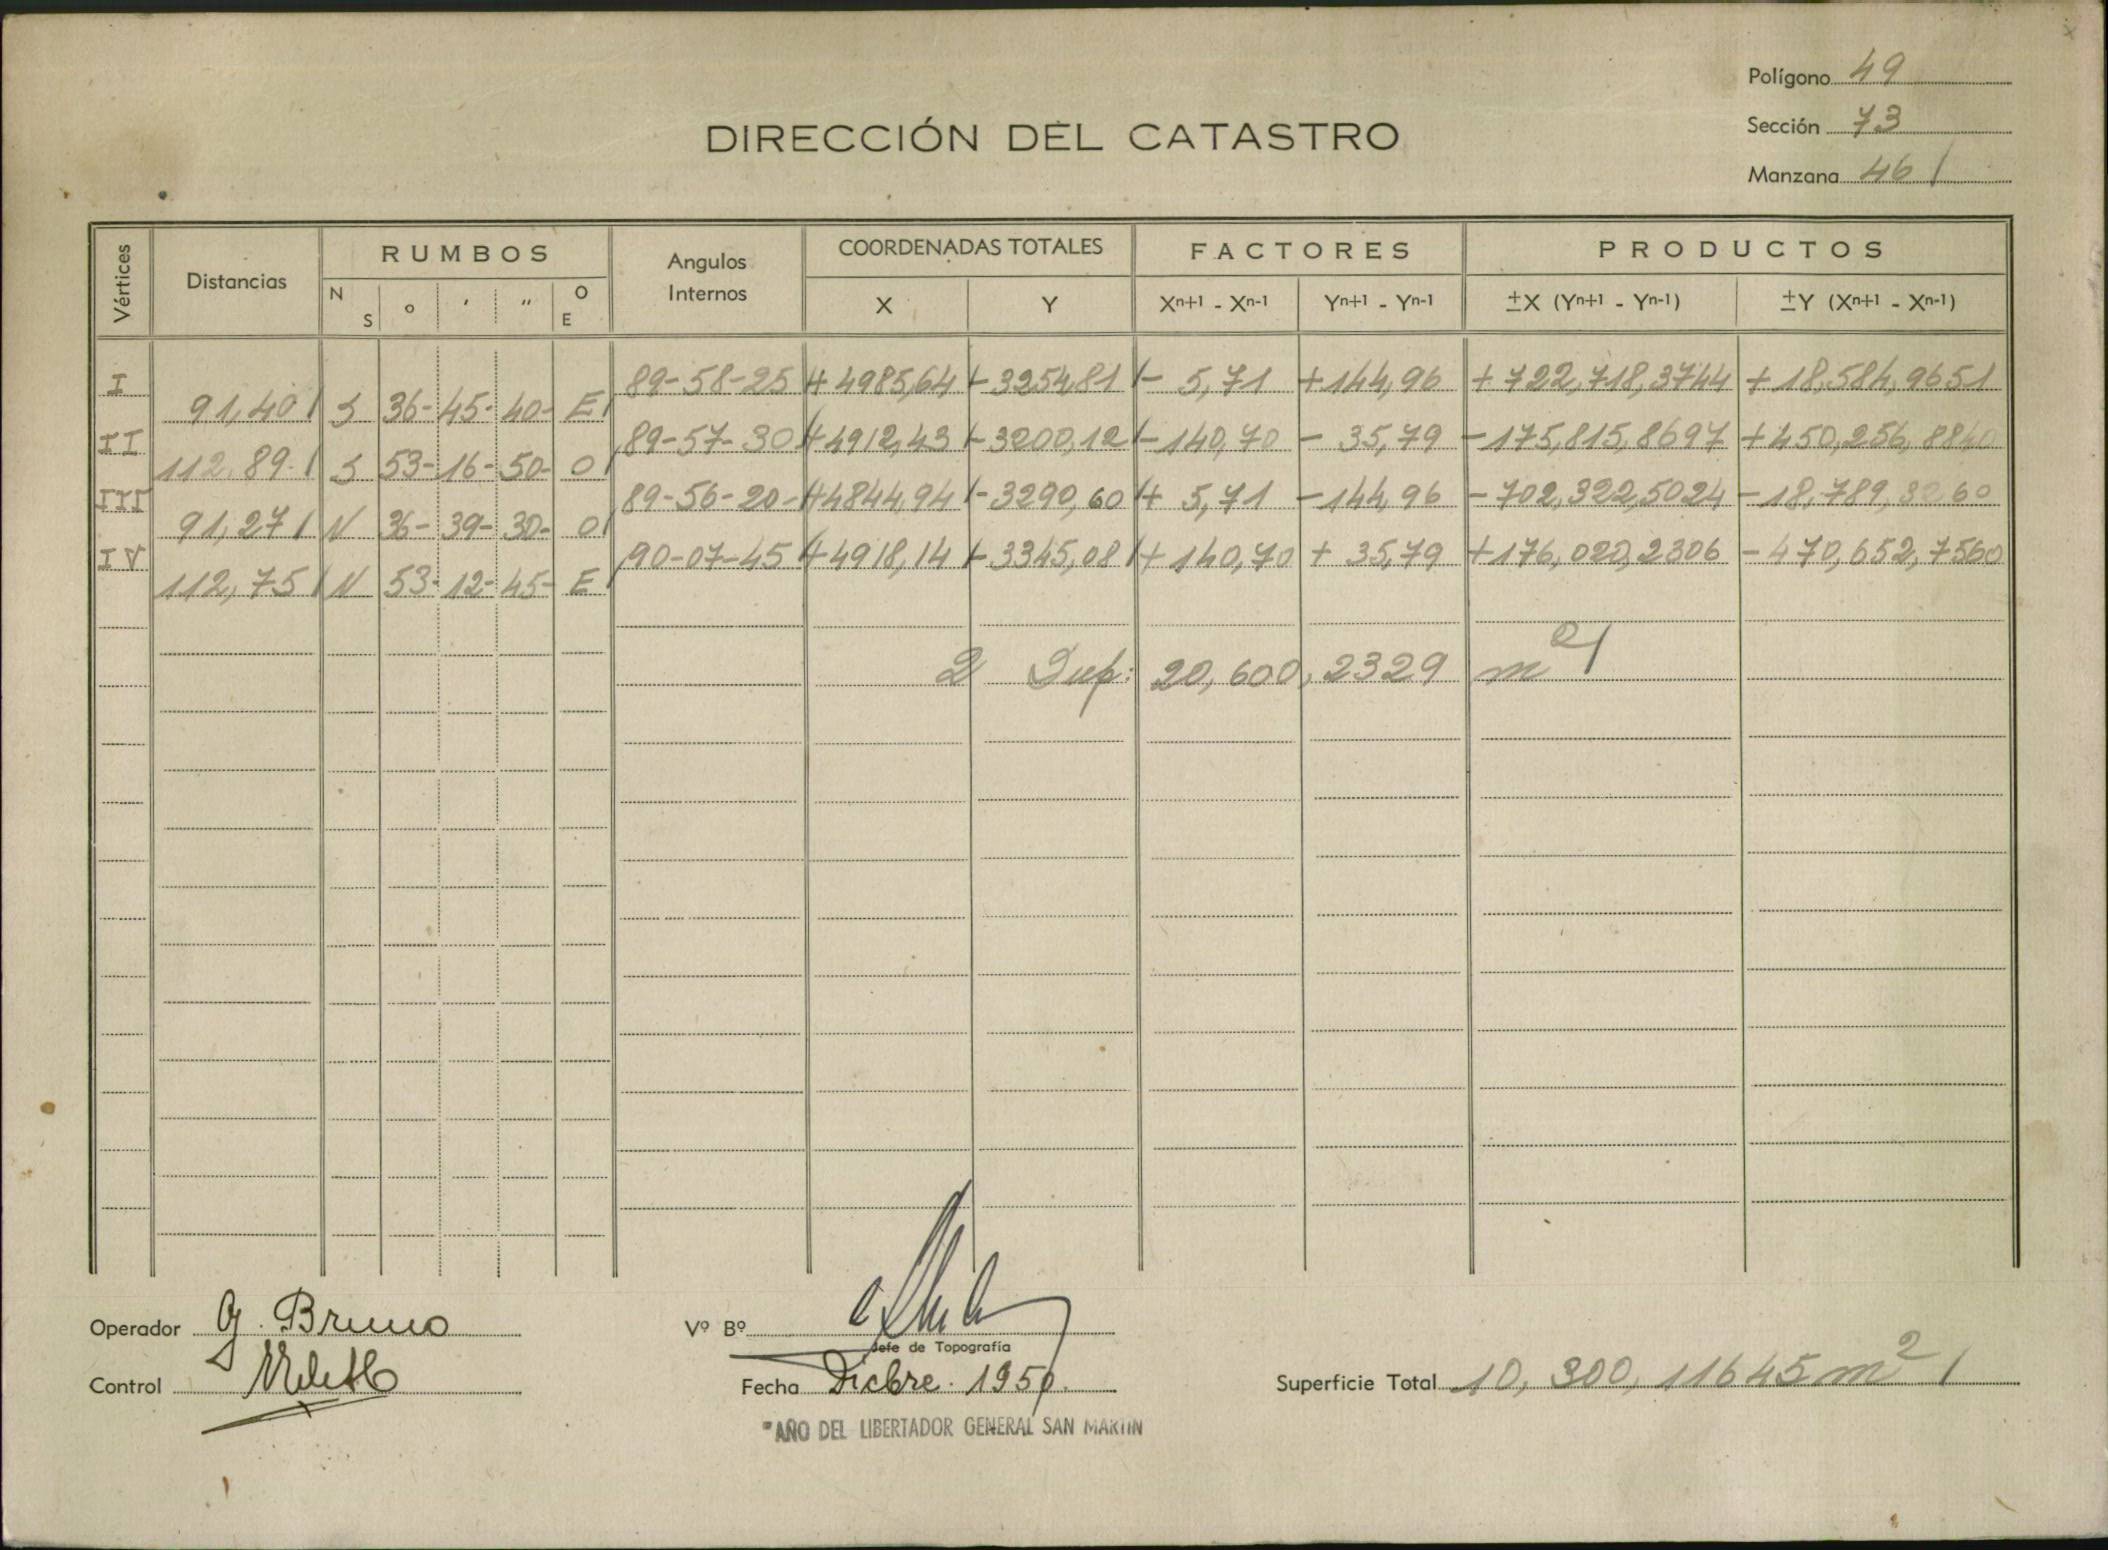 Polígono 49
Sección 73
Manzana 46
DIRECCIÓN DEL CATASTRO
Vértices Distancias RUMBOS Angulos Internos COORDENADAS TOTALES FACTORES PRODUCTOS
N S o ' " O E X Y Xn+1 - Xn-1 Yn+1 - Yn-1 ±X (Yn+1 - Yn-1) ±Y (Xn+1 - Xn-1)
I 89-58-25 +4985,64 -3254,81 - 5,71 +144,96 +722,718,3744 +18,584,9651
91,40 S 36- 45- 40- E
II 89-57-30 +4912,43 -3200,12 -140,70 - 35,79 -175,815,8697 +450,256,8840
112,89 S 53- 16- 50- O
III 89-56-20- +4844,94 -3290,60 + 5,71 -144,96 -702,322,5024 -18,789,3260
91,27 N 36- 39- 30- O
IV 90-07-45 +4918,14 -3345,08 +140,70 + 35,79 +176,020,2306 -470,652,7560
112,75 N 53- 12- 45- E
2 Sup: 20,600,2329 m2
Operador G. Bruno
Vº Bº
Jefe de Topografía
Control
Fecha Dicbre. 1950.
Superficie Total 10,300,11645 m2
"AÑO DEL LIBERTADOR GENERAL SAN MARTIN